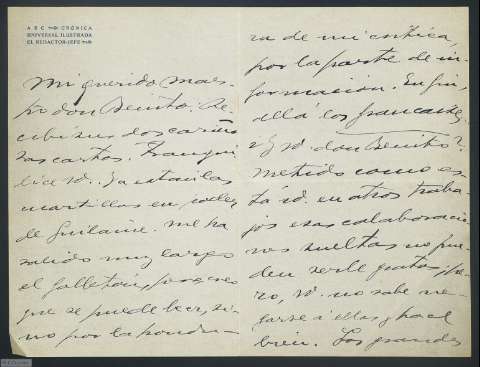 A B C CRÓNICA
UNIVERSAL ILUSTRADA
EL REDACTOR-JEFE
Mi querido maes-
tro don Benito: Re-
cibí sus dos cariño
sas cartas. Tranqui
lice V. Ya están las
cuartillas en poder
de Guilaine. Me ha
salido muy largo
el folletón, porque creo
que se puede leer, si-
no por la pondu-
ra de mi crítica,
por la parte de in-
formación. En fin,
allá los franceses.
¿Y V. don Benito?
Metido como es-
tá V. en otros traba-
jos esas colaboracio
nes sueltas no pue-
den serle gratas, pe-
ro, V. no sabe ne-
garse a ellas y hace
bien. Los grandes